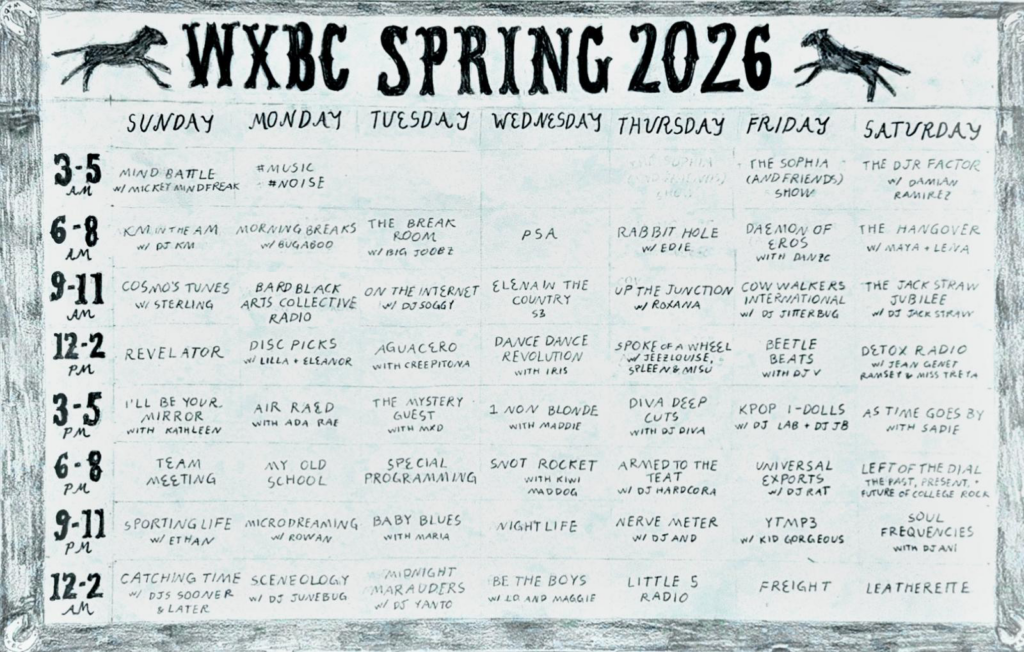 WXBC SPRING 2026
SUNDAY MONDAY TUESDAY WEDNESDAY THURSDAY FRIDAY SATURDAY
3-5 AM
MIND BATTLE
W/ MICKEY MINDFREAK
#MUSIC
#NOISE
THE SOPHIA
(AND FRIENDS)
SHOW
THE SOPHIA
(AND FRIENDS)
SHOW
THE DJR FACTOR
W/ DAMIAN
RAMIREZ
6-8 AM
KM IN THE AM
W/ DJ KM
MORNING BREAKS
W/ BUGABOO
THE BREAK
ROOM
W/ BIG JOOBZ
PSA
RABBIT HOLE
W/ EDIE
DAEMON OF
EROS
WITH DANZC
THE HANGOVER
W/ MAYA + LENA
9-11 AM
COSMO'S TUNES
W/ STERLING
BARD BLACK
ARTS COLLECTIVE
RADIO
ON THE INTERNET
W/ DJ SOGGY
ELENA IN THE
COUNTRY
S3
UP THE JUNCTION
W/ ROXANA
COW WALKERS
INTERNATIONAL
W/ DJ JITTERBUG
THE JACK STRAW
JUBILEE
W/ DJ JACK STRAW
12-2 PM
REVELATOR
DISC PICKS
W/ LILLA + ELEANOR
AGUACERO
WITH CREEPITONA
DANCE DANCE
REVOLUTION
WITH IRIS
SPOKE OF A WHEEL
W/ JEEZLOUISE,
SPLEEN & MISU
BEETLE
BEATS
WITH DJ V
DETOX RADIO
W/ JEAN GENET
RAMSEY & MISS TRETA
3-5 PM
I'LL BE YOUR
MIRROR
WITH KATHLEEN
AIR RAED
WITH ADA RAE
THE MYSTERY
GUEST
WITH MXD
1 NON BLONDE
WITH MADDIE
DIVA DEEP
CUTS
WITH DJ DIVA
KPOP I-DOLLS
W/ DJ LAB + DJ JB
AS TIME GOES BY
WITH SADIE
6-8 PM
TEAM
MEETING
MY OLD
SCHOOL
SPECIAL
PROGRAMMING
SNOT ROCKET
WITH KIWI
MADDOG
ARMED TO THE
TEAT
W/ DJ HARDCORA
UNIVERSAL
EXPORTS
W/ DJ RAT
LEFT OF THE DIAL
THE PAST, PRESENT, +
FUTURE OF COLLEGE ROCK
9-11 PM
SPORTING LIFE
W/ ETHAN
MICRODREAMING
W/ ROWAN
BABY BLUES
WITH MARIA
NIGHTLIFE
NERVE METER
W/ DJ AND
YTMP3
W/ KID GORGEOUS
SOUL
FREQUENCIES
WITH DJ ANI
12-2 AM
CATCHING TIME
W/ DJS SOONER
& LATER
SCENEOLOGY
W/ DJ JUNEBUG
MIDNIGHT
MARAUDERS
W/ DJ YANTO
BE THE BOYS
W/ LO AND MAGGIE
LITTLE 5
RADIO
FREIGHT
LEATHERETTE